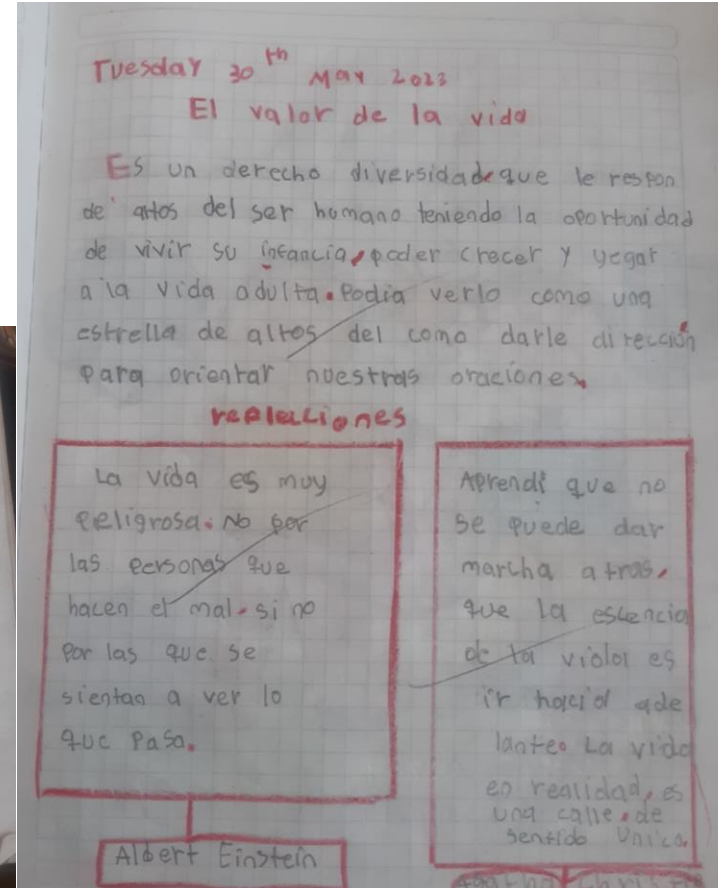 Tuesday 30th May 2023
El valor de la vida
Es un derecho diversidad que le respon
de altos del ser humano teniendo la oportunidad
de vivir su infancia, poder crecer y yegar
a la vida adulta. Podia verlo como una
estrella de altos del como darle dirección
para orientar nuestras oraciones.
replecciones
La vida es muy
peligrosa. No por
las personas que
hacen el mal. si no
por las que se
sientan a ver lo
que pasa.
Albert Einstein
Aprendí que no
se puede dar
marcha atras,
que la escencia
de la vida es
ir hacia ade
lante. La vida
en realidad, es
una calle, de
sentido unica.